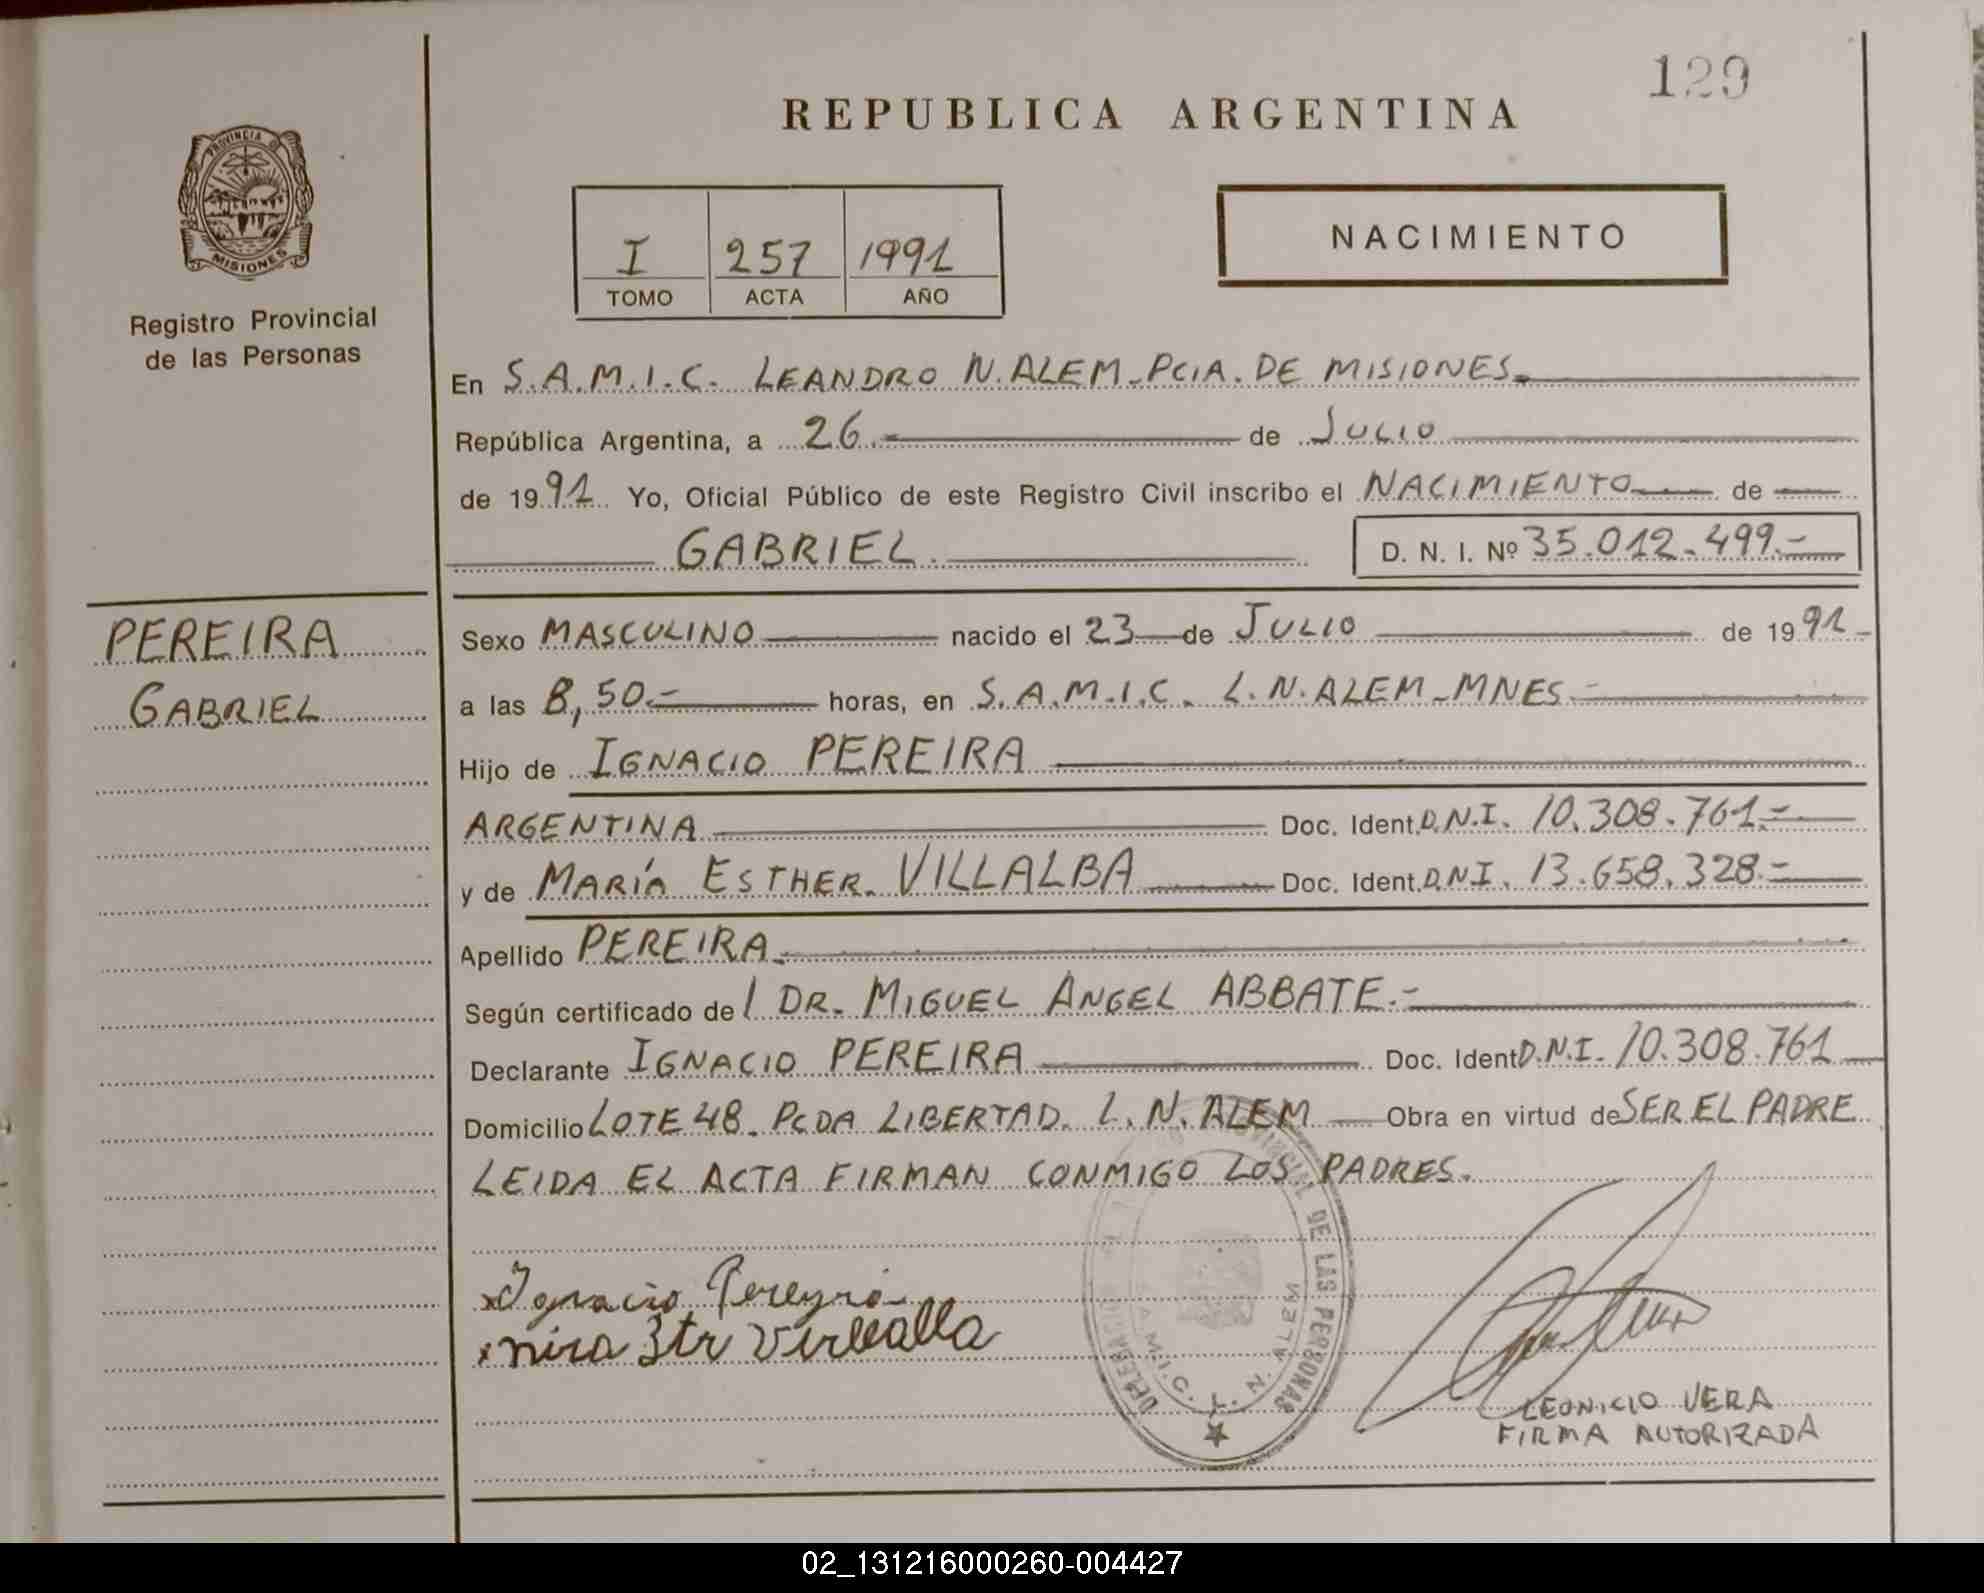 129
REPUBLICA ARGENTINA
PROVINCIA D
MISIONES
Registro Provincial
de las Personas
I 257 1991
TOMO ACTA AÑO
NACIMIENTO
En S.A.M.I.C. LEANDRO N. ALEM - PCIA. DE MISIONES.
República Argentina, a 26.- de JULIO
de 1991 Yo, Oficial Público de este Registro Civil inscribo el NACIMIENTO de
GABRIEL. D. N. I. Nº 35.012.499.-
PEREIRA
GABRIEL
Sexo MASCULINO nacido el 23 de JULIO de 1991
a las 8,50.- horas, en S.A.M.I.C. L.N. ALEM - MNES.-
Hijo de IGNACIO PEREIRA
ARGENTINA Doc. Ident. D.N.I. 10.308.761.-
y de MARÍA ESTHER. VILLALBA Doc. Ident. D.N.I. 13.658.328.-
Apellido PEREIRA.
Según certificado de l DR. MIGUEL ANGEL ABBATE.-
Declarante IGNACIO PEREIRA Doc. Ident D.N.I. 10.308.761
Domicilio LOTE 48. PCDA LIBERTAD. L. N. ALEM Obra en virtud de SER EL PADRE
LEIDA EL ACTA FIRMAN CONMIGO LOS PADRES.
x Ignacio Pereyra
DE LAS PERSONAS
S.A.M.I.C. L. N. ALEM
LEONICIO VERA
FIRMA AUTORIZADA
02_131216000260-004427